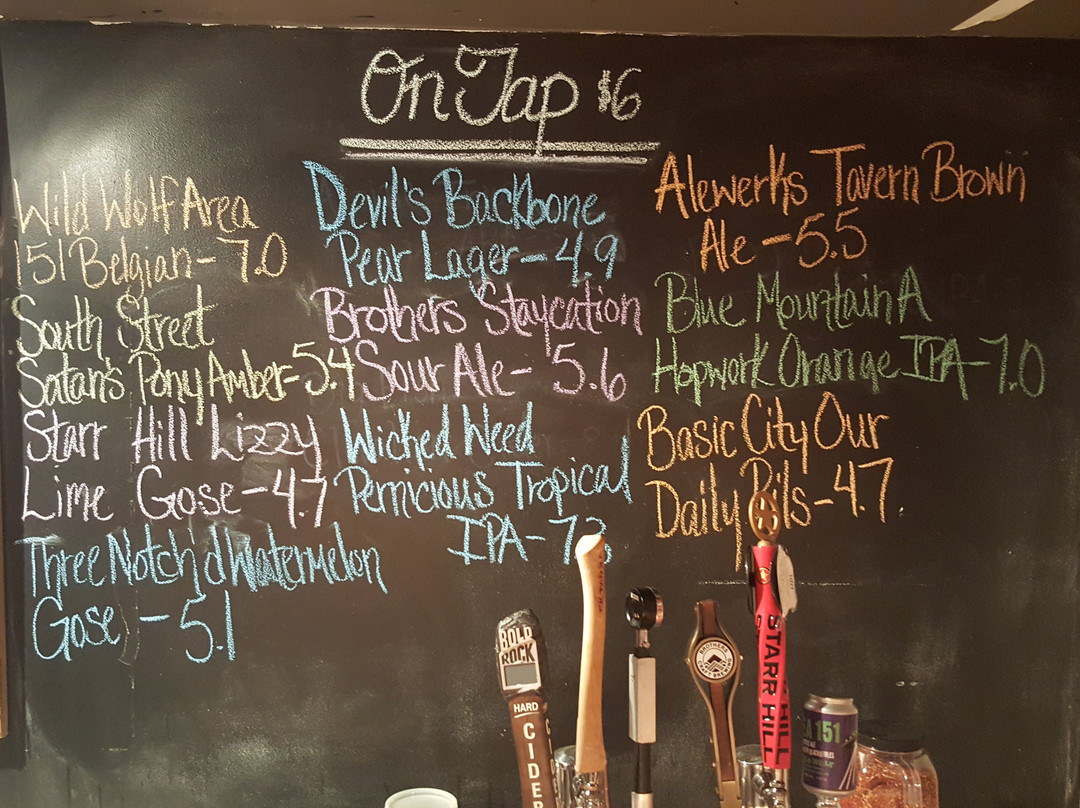 On Tap $6
Wild Wolf Area
151 Belgian - 7.0
South Street
Satan's Pony Amber - 5.4
Starr Hill Lizzy
Lime Gose - 4.7
Three Notch'd Watermelon
Gose - 5.1
Devil's Backbone
Pear Lager - 4.9
Brothers Staycation
Sour Ale - 5.6
Wicked Weed
Pernicious Tropical
IPA - 7.3
Alewerks Tavern Brown
Ale - 5.5
Blue Mountain A
Hopwork Orange IPA - 7.0
Basic City Our
Daily Pils - 4.7
BOLD
ROCK
HARD
CIDER
BROTHERS
STARR HILL
151